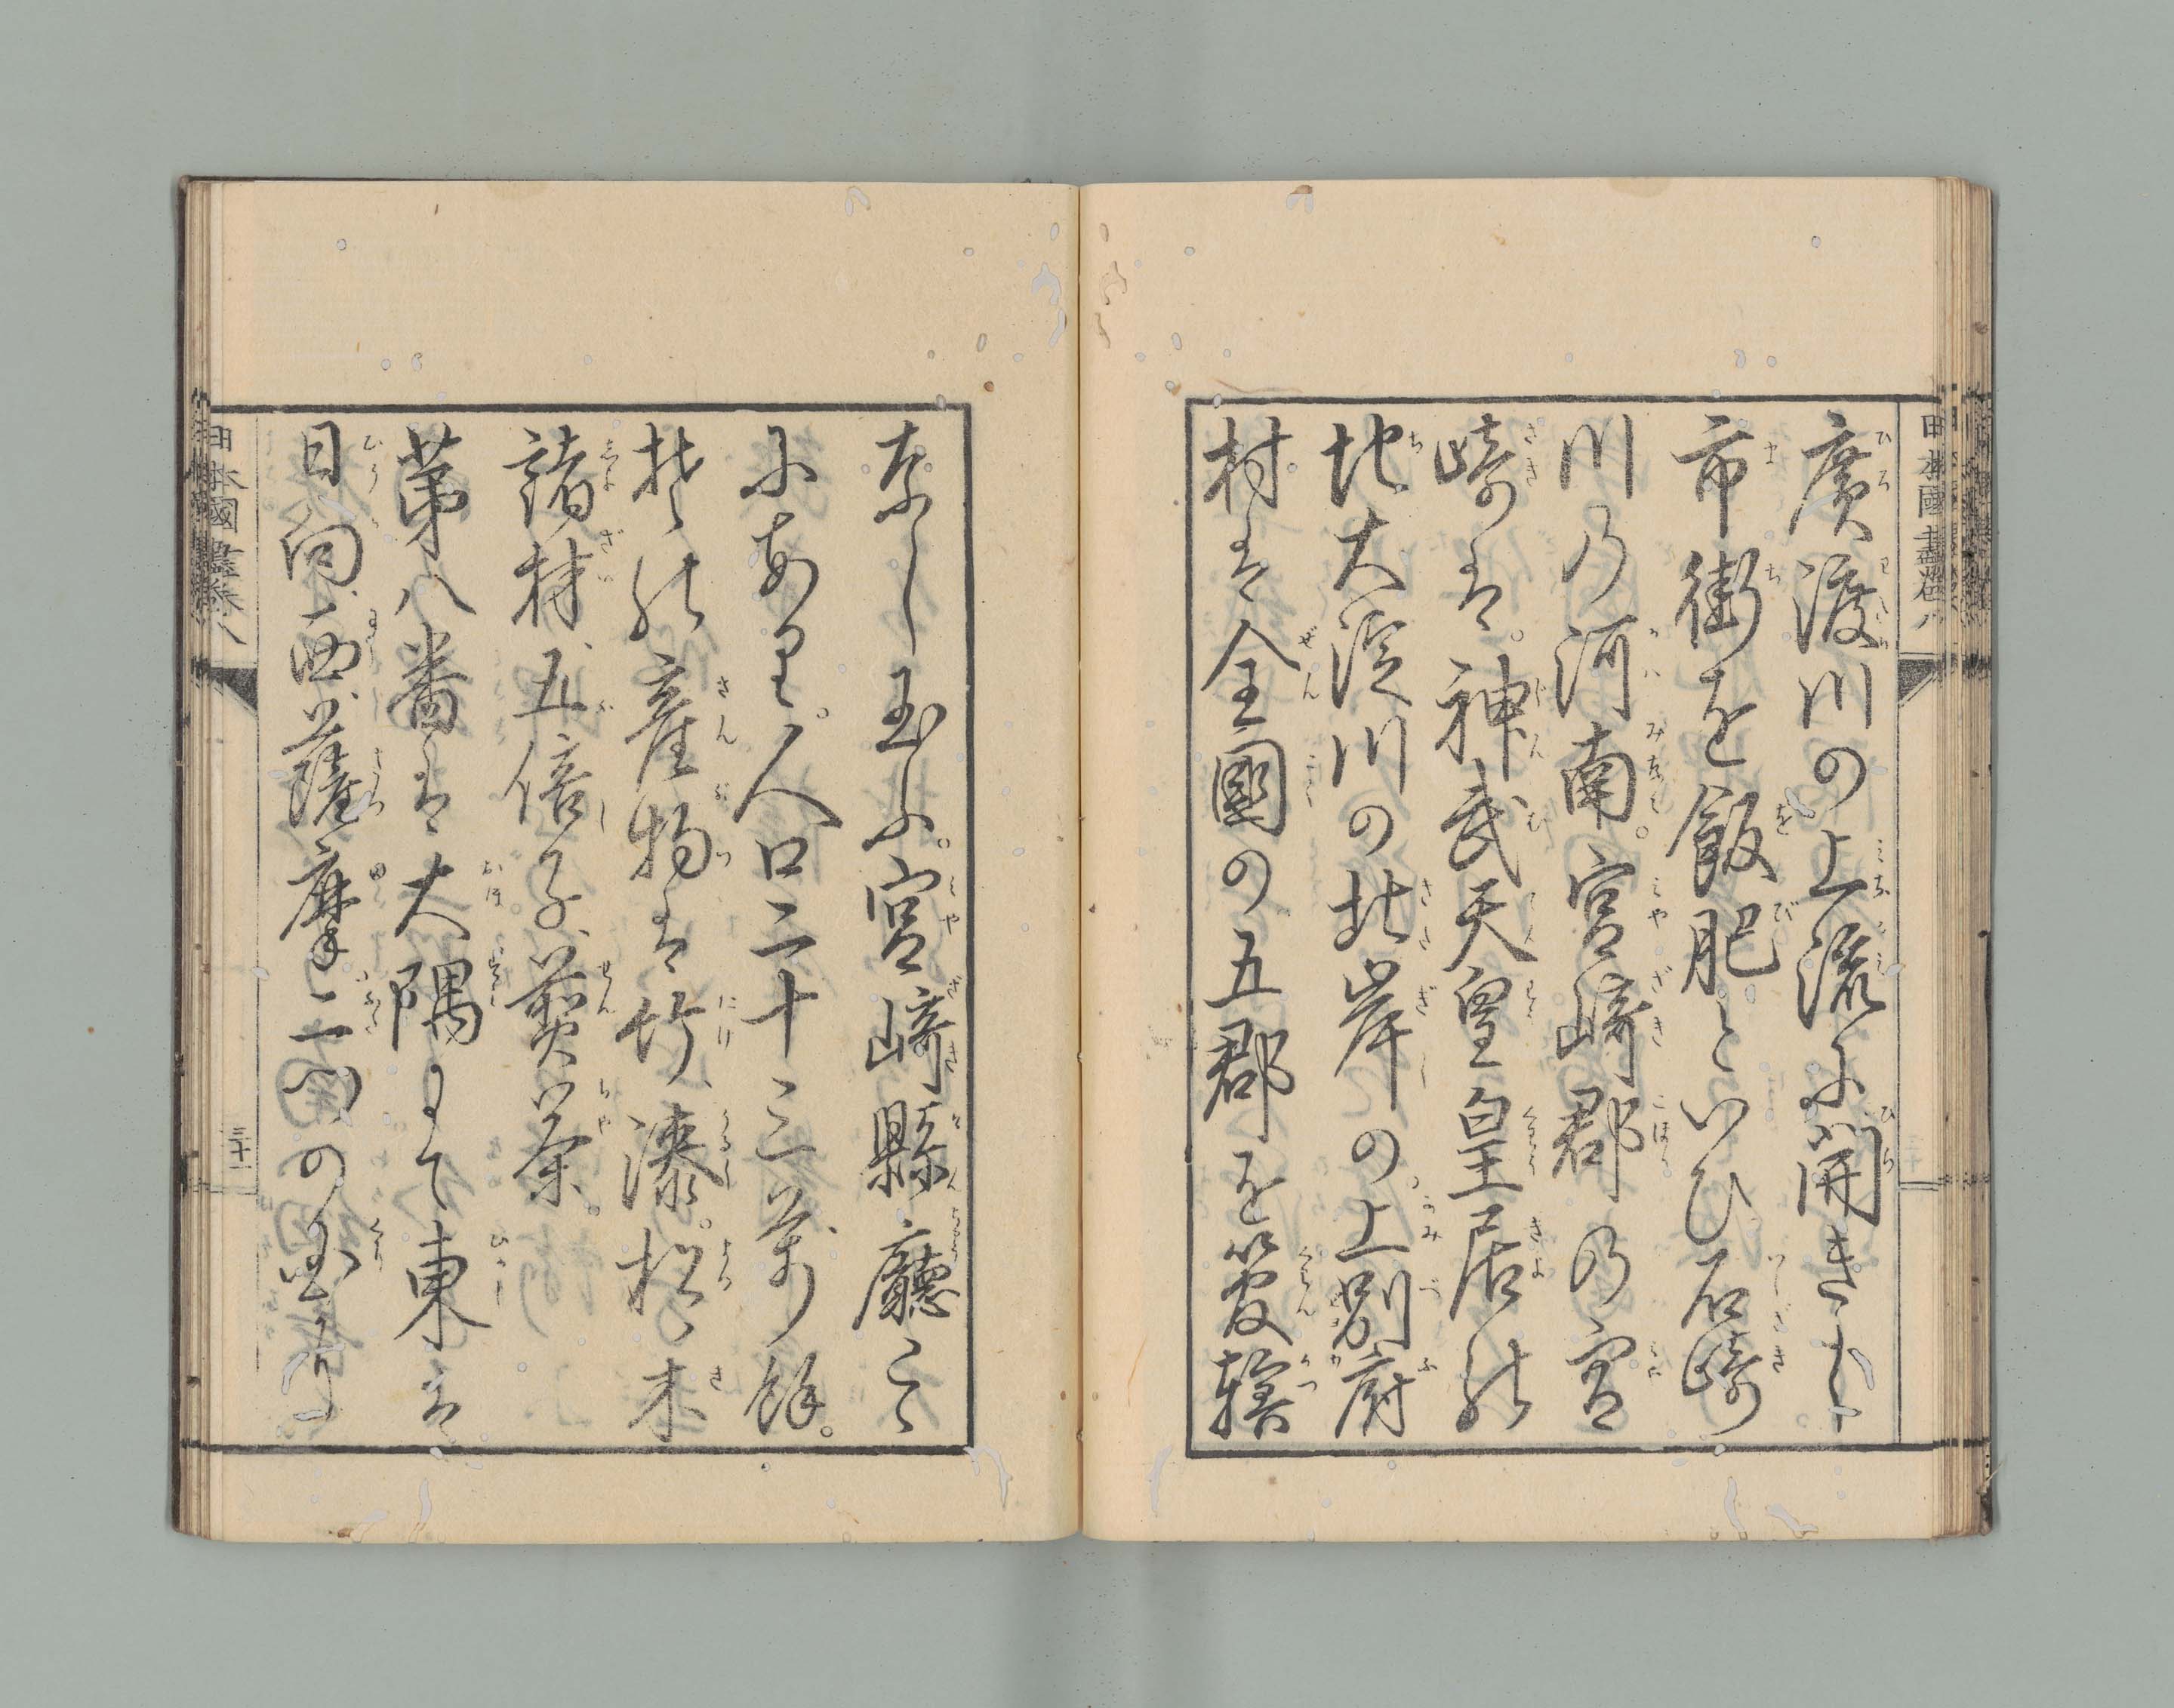 廣渡川の上流に開きし
市街を飫肥といひ石﨑
川の河南。宮﨑郡の宮
﨑は。神武天皇皇居の
地大淀川の北岸の上別府
村は全國の五郡を管轄
なし玉ふ。宮﨑縣廳こゝ
にあり。人口二十三萬餘。
其の產物は竹、漆。松、木
諸材、五倍子、煎茶。
第八番は大隅にて東は
日向、西、薩摩二州の國
日本國盡卷八
三十一